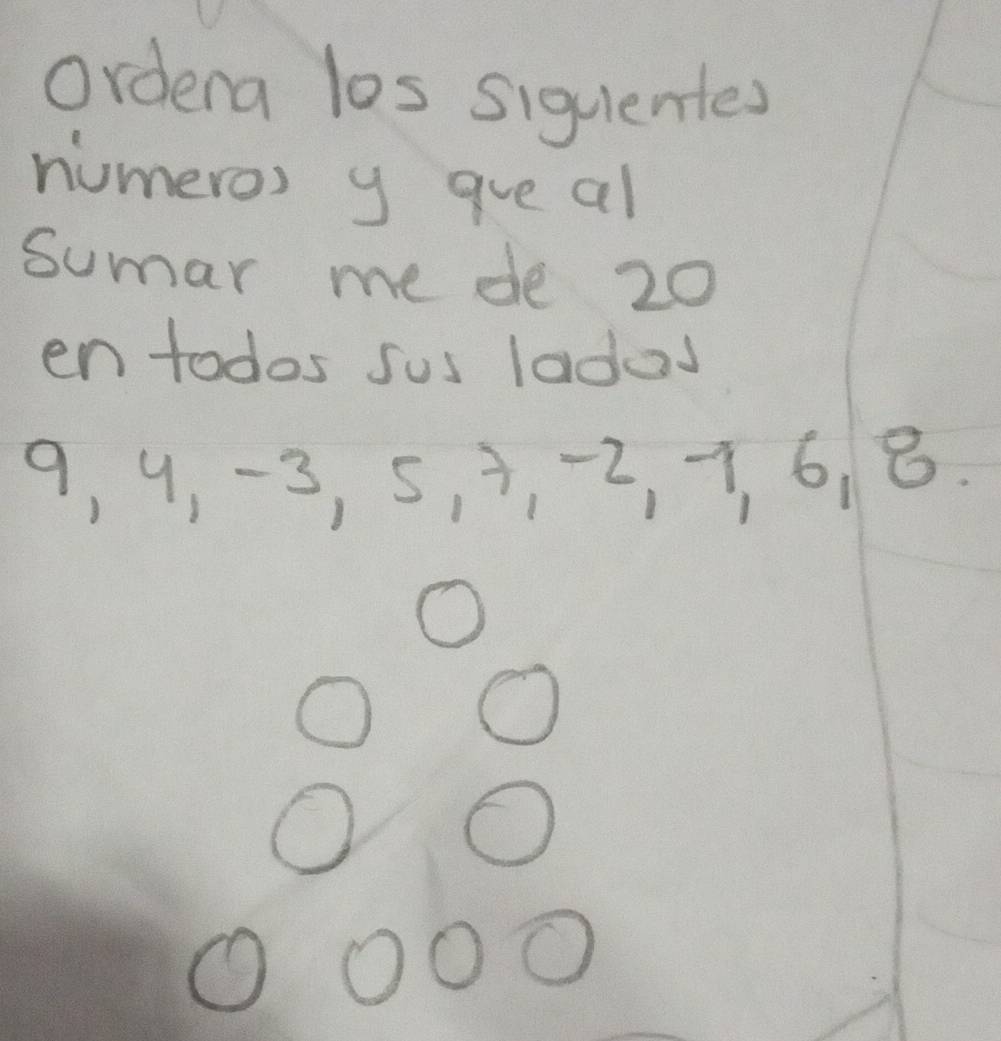 Ordena los siguientes
números y que al
Sumar me de 20
en todos sus lados
9, 4, -3, 5, 7, -2, -1, 6, 8.